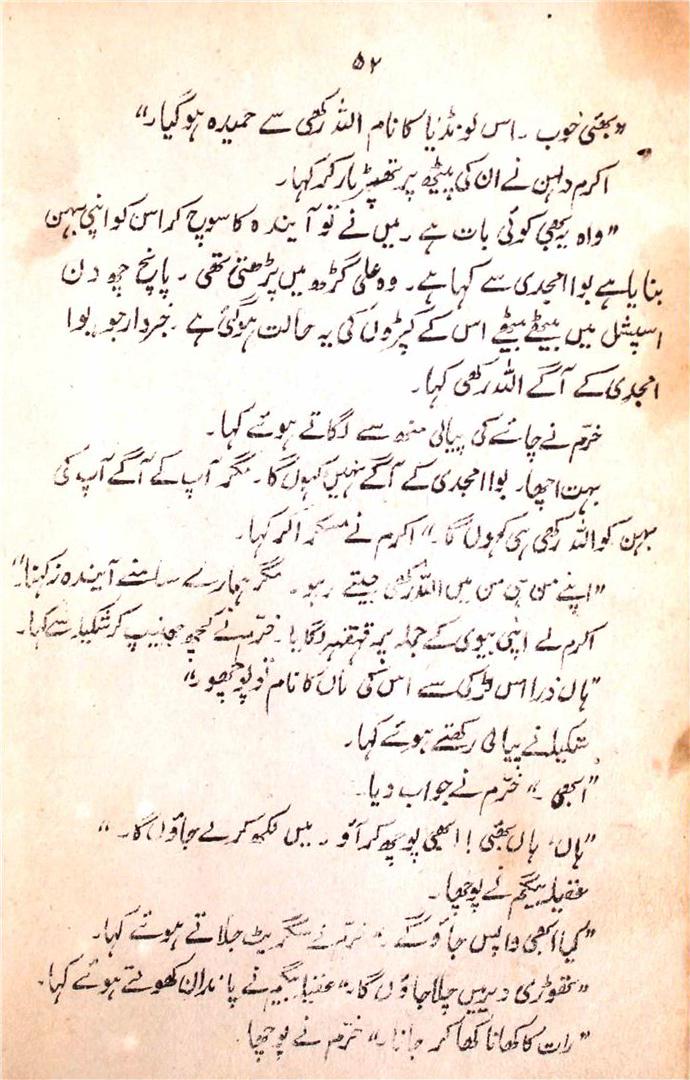 ۵۲
"بھئی خوب ۔ اس لونڈیا کا نام اللہ رکھی سے حمیدہ ہوگیا۔"
اکرم دلہن نے ان کی پیٹھ پر تھپڑ مار کر کہا۔
"واہ یہ بھی کوئی بات ہے ۔ میں نے تو آیندہ کا سوچ کر اس کو اپنی بہن
بنایا ہے بوا امجدی سے کہا ہے۔ وہ علی گڑھ میں پڑھتی تھی ۔ پانچ چھ دن
اسپشل میں بیٹھے بیٹھے اس کے کپڑوں کی یہ حالت ہوگئی ہے ۔ خبردار جو بوا
امجدی کے آگے اللہ رکھی کہا۔
خرّم نے چائے کی پیالی منھ سے لگاتے ہوئے کہا۔
بہت اچھا۔ بوا امجدی کے آگے نہیں کہوں گا۔ مگر آپ کے آگے آپ کی
بہن کو اللہ رکھی ہی کہوں گا۔" اکرم نے مسکرا کر کہا۔
"اپنے من ہی من میں اللہ رکھی جپتے رہو ۔ مگر ہمارے سامنے آیندہ نہ کہنا۔"
اکرم نے اپنی بیوی کے جملہ پر قہقہہ لگایا ۔ خرّم نے کچھ جھینپ کر شکیلہ سے کہا۔
"ہاں ذرا اس لڑکی سے اس کی ماں کا نام تو پوچھو۔"
شکیلہ نے پیالی رکھتے ہوئے کہا۔
"ابھی ۔" خرّم نے جواب دیا۔
"ہاں، ہاں بھئی ! ابھی پوچھ کر آؤ ۔ میں لکھ کر لے جاؤں گا۔"
عقیلہ بیگم نے پوچھا۔
"کیا ابھی واپس جاؤ گے ۔" خرّم نے سگریٹ جلاتے ہوئے کہا۔
"تھوڑی دیر میں چلا جاؤں گا۔" عقیلہ بیگم نے پاندان کھولتے ہوئے کہا۔
"رات کا کھانا کھا کر جانا۔" خرّم نے پوچھا۔